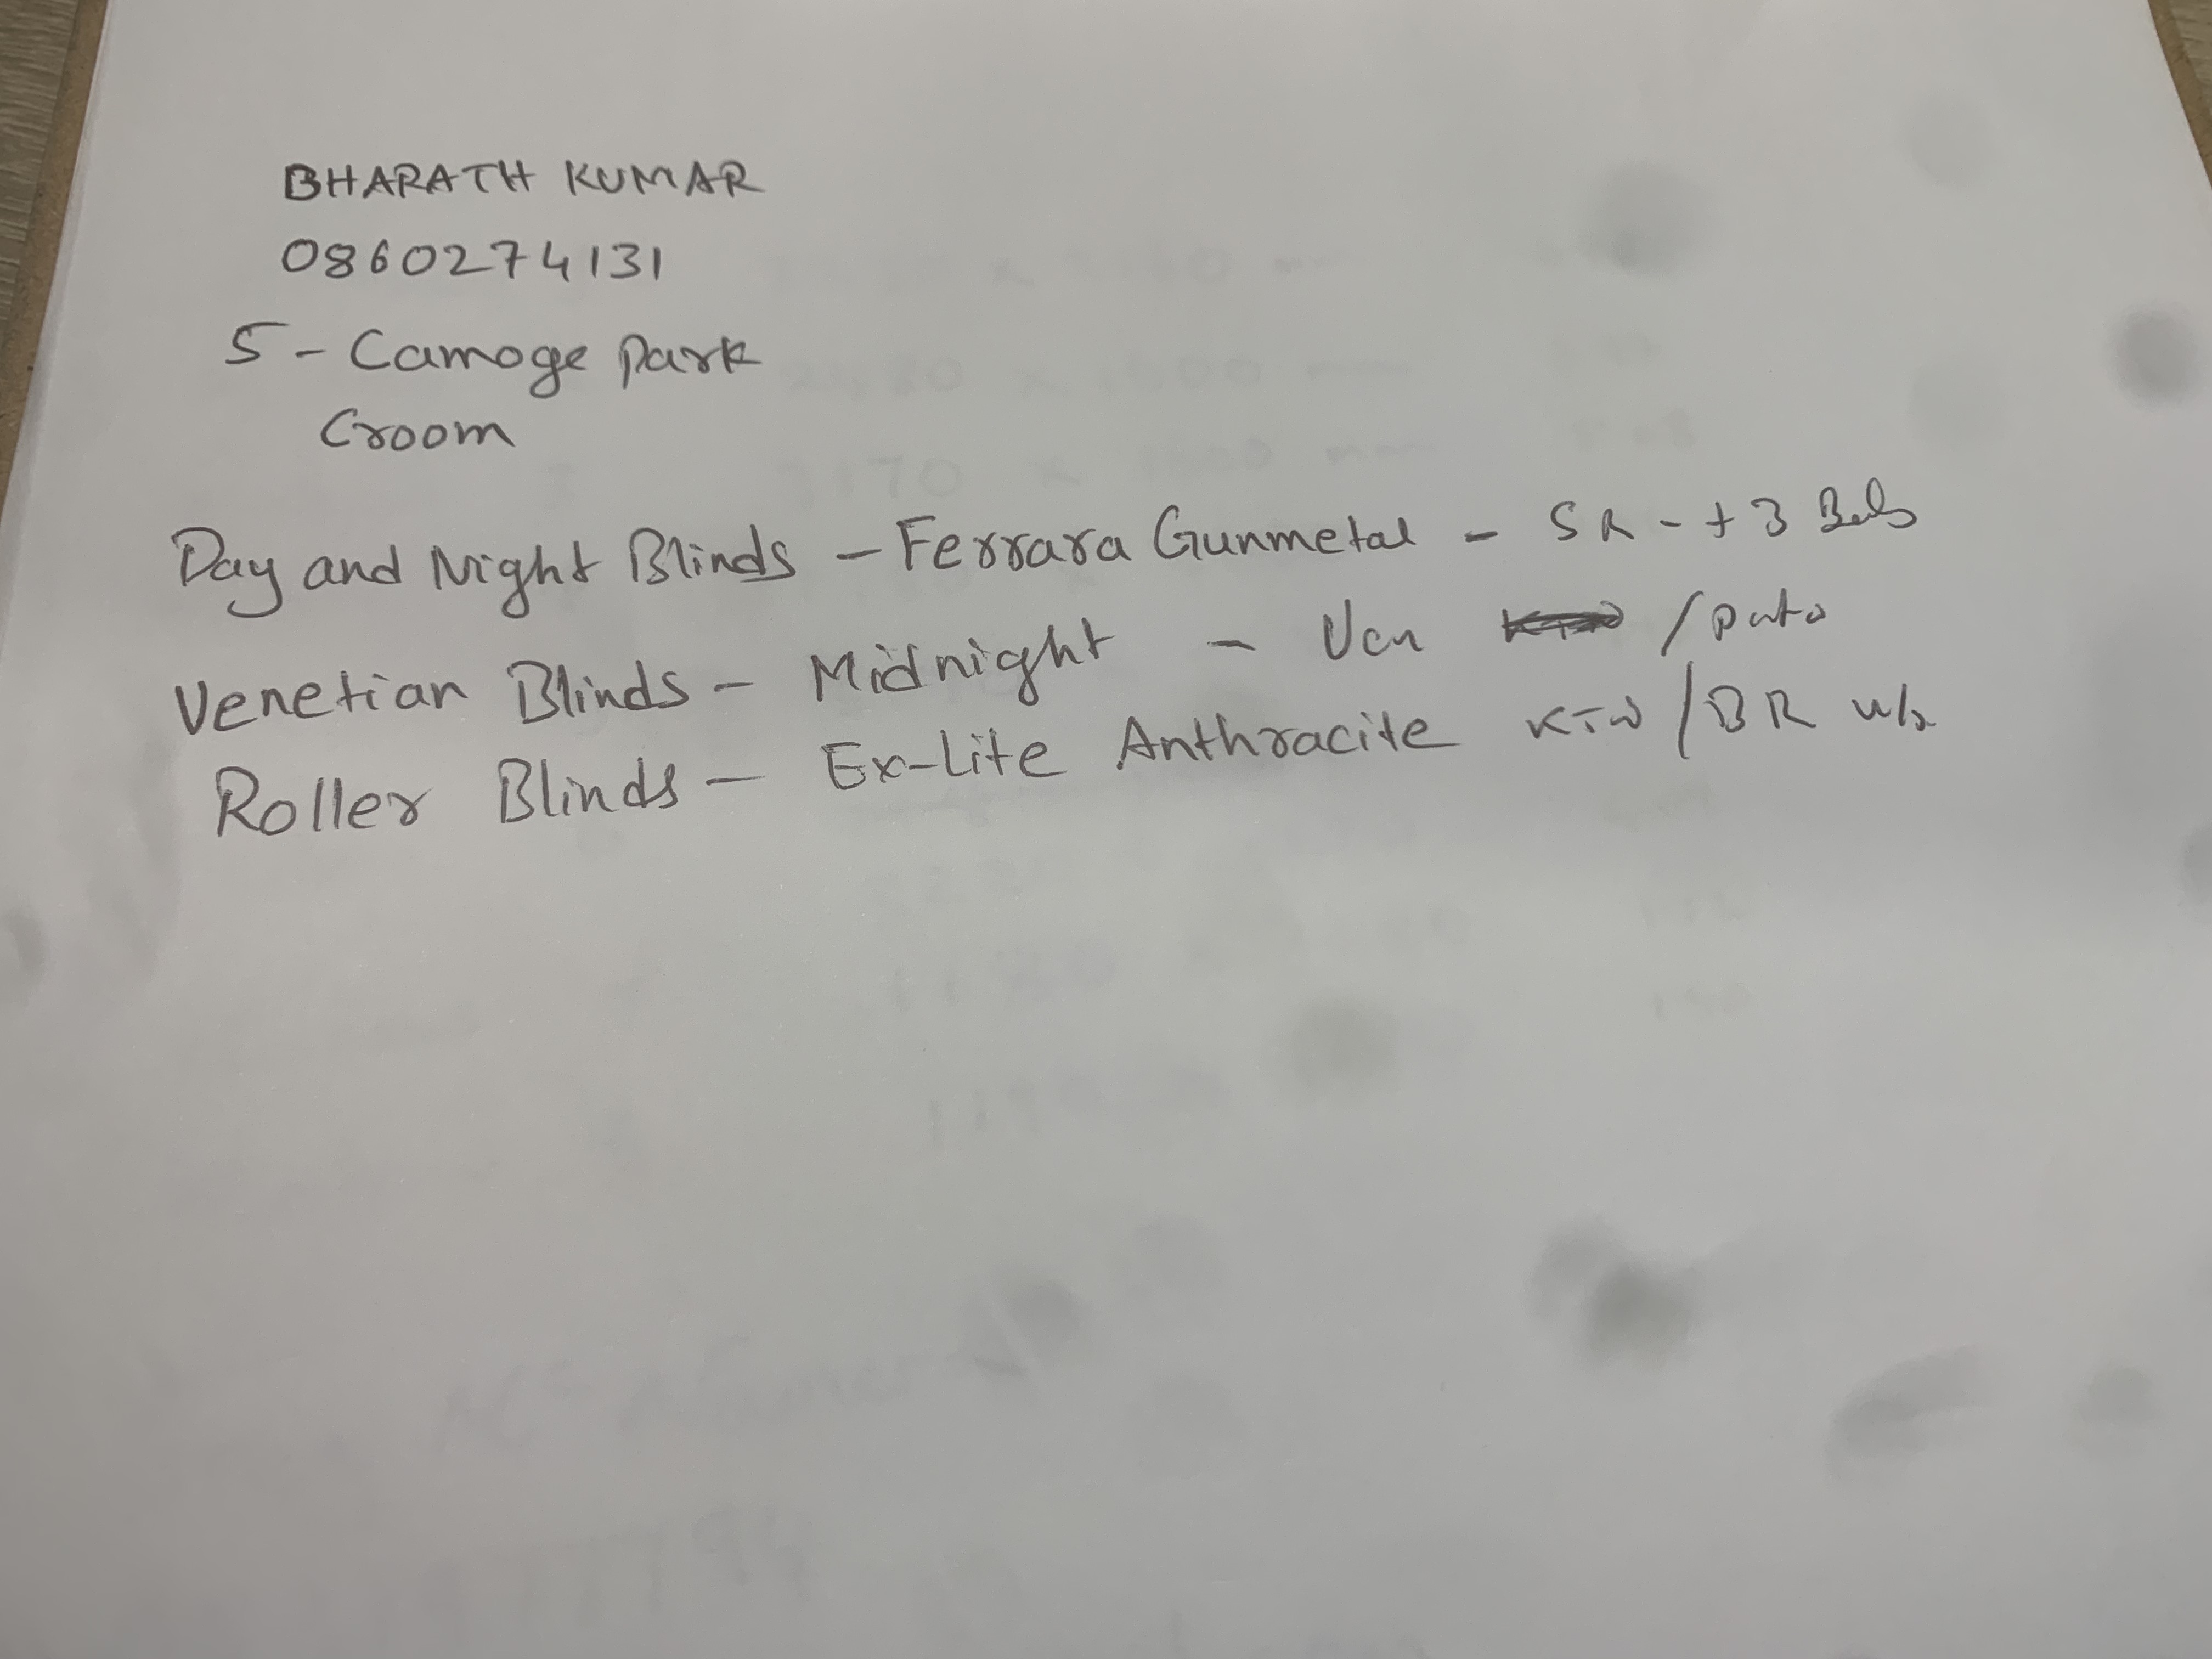 BHARATH KUMAR
0860274131
5 - Camoge park
Croom
Day and Night Blinds - Ferrara Gunmetal - SR - + 3 Beds
Venetian Blinds - Midnight - Ven / patio
Roller Blinds - Ex-Lite Anthracite KTW / BR